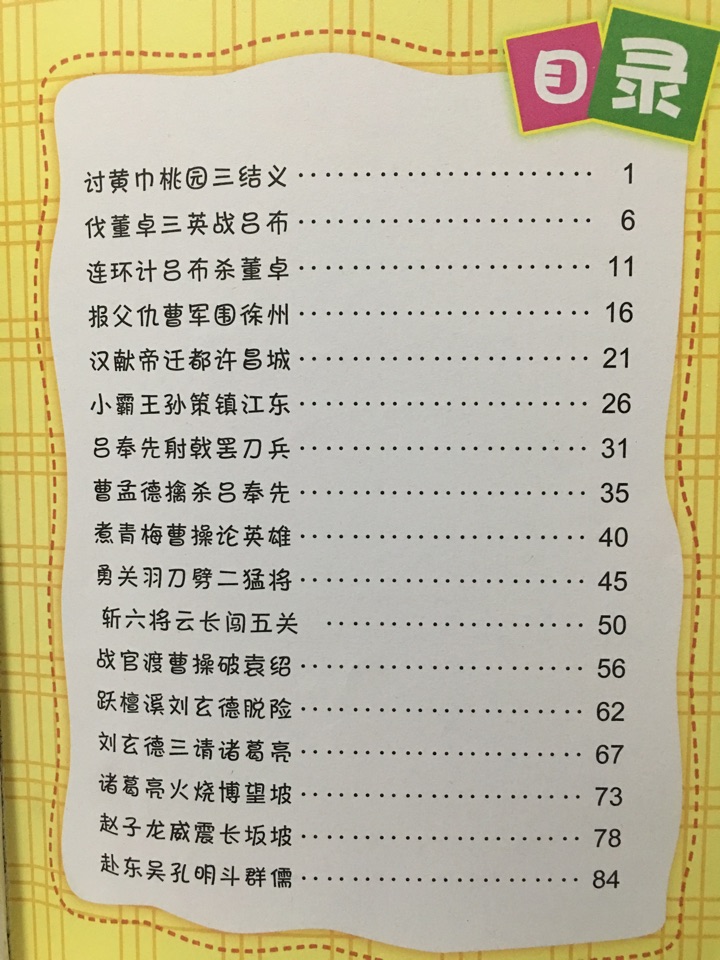 目录
讨黄巾桃园三结义······················· 1
伐董卓三英战吕布······················· 6
连环计吕布杀董卓······················· 11
报父仇曹军围徐州······················· 16
汉献帝迁都许昌城······················· 21
小霸王孙策镇江东······················· 26
吕奉先射戟罢刀兵······················· 31
曹孟德擒杀吕奉先······················· 35
煮青梅曹操论英雄······················· 40
勇关羽刀劈二猛将······················· 45
斩六将云长闯五关 ····················· 50
战官渡曹操破袁绍······················· 56
跃檀溪刘玄德脱险······················· 62
刘玄德三请诸葛亮······················· 67
诸葛亮火烧博望坡······················· 73
赵子龙威震长坂坡······················· 78
赴东吴孔明斗群儒······················· 84